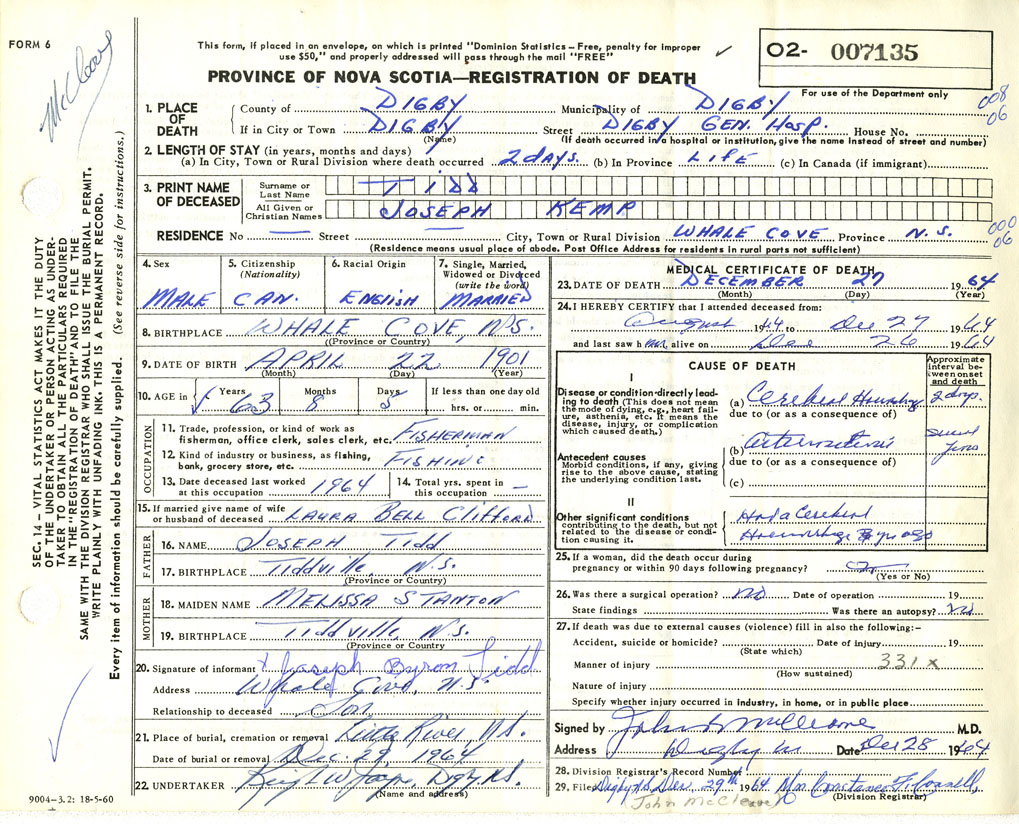 FORM 6
McCleave
This form, if placed in an envelope, on which is printed "Dominion Statistics – Free, penalty for improper
use $50," and properly addressed will pass through the mail "FREE"
✓
O2- 007135
For use of the Department only
PROVINCE OF NOVA SCOTIA—REGISTRATION OF DEATH
008
06
1. PLACE OF DEATH { County of DIGBY Municipality of DIGBY
If in City or Town DIGBY Street DIGBY GEN. HOSP. House No.
(Name) (If death occurred in a hospital or institution, give the name instead of street and number)
2. LENGTH OF STAY (in years, months and days)
(a) In City, Town or Rural Division where death occurred 2 days. (b) In Province LIFE (c) In Canada (if immigrant)
3. PRINT NAME OF DECEASED
Surname or Last Name TIDD
All Given or Christian Names JOSEPH KEMP
RESIDENCE No — Street — City, Town or Rural Division WHALE COVE Province N.S.
000
06
(Residence means usual place of abode. Post Office Address for residents in rural parts not sufficient)
4. Sex MALE
5. Citizenship (Nationality) CAN.
6. Racial Origin ENGLISH
7. Single, Married, Widowed or Divorced (write the word) MARRIED
8. BIRTHPLACE WHALE COVE, N.S.
(Province or Country)
9. DATE OF BIRTH APRIL 22 1901
(Month) (Day) (Year)
10. AGE in { Years 63 Months 8 Days 5 If less than one day old
hrs. or min.
OCCUPATION
11. Trade, profession, or kind of work as
fisherman, office clerk, sales clerk, etc. FISHERMAN
12. Kind of industry or business, as fishing,
bank, grocery store, etc. FISHING
13. Date deceased last worked
at this occupation 1964
14. Total yrs. spent in
this occupation —
15. If married give name of wife
or husband of deceased LAURA BELL Clifford
FATHER
16. NAME JOSEPH TIDD
17. BIRTHPLACE Tiddville, N.S.
(Province or Country)
MOTHER
18. MAIDEN NAME MELISSA STANTON
19. BIRTHPLACE Tiddville, N.S.
(Province or Country
20. Signature of informant x Joseph Byron Tidd
Address Whale Cove, N.S.
Relationship to deceased Son
21. Place of burial, cremation or removal River, N.S.
Date of burial or removal Dec. 29, 1964
22. UNDERTAKER Digby, N.S.
(Name and address)
MEDICAL CERTIFICATE OF DEATH
23. DATE OF DEATH DECEMBER 27 1964
(Month) (Day) (Year)
24. I HEREBY CERTIFY that I attended deceased from:
August 1964 to Dec 27 1964
and last saw him alive on Dec 26 1964
CAUSE OF DEATH
Approximate interval between onset and death
I
Disease or condition directly leading to death (This does not mean the mode of dying, e.g., heart failure, asthenia, etc. It means the disease, injury, or complication which caused death.)
(a) Cerebral 2 days.
due to (or as a consequence of)
Antecedent causes
Morbid conditions, if any, giving rise to the above cause, stating the underlying condition last.
(b)
due to (or as a consequence of)
(c)
II
Other significant conditions
contributing to the death, but not related to the disease or condition causing it.
Had a Cerebral
ago
25. If a woman, did the death occur during
pregnancy or within 90 days following pregnancy?
(Yes or No)
26. Was there a surgical operation? no Date of operation 19
State findings Was there an autopsy? no
27. If death was due to external causes (violence) fill in also the following:–
Accident, suicide or homicide? Date of injury 19
(State which)
Manner of injury 331 x
(How sustained)
Nature of injury
Specify whether injury occurred in industry, in home, or in public place
Signed by M.D.
Address Digby Date Dec 28 1964
28. Division Registrar's Record Number
29. Filed Digby N.S. Dec 29th 1964 Constance
(Division Registrar)
John McCleave
SEC. 14 – VITAL STATISTICS ACT MAKES IT THE DUTY
OF THE UNDERTAKER OR PERSON ACTING AS UNDER-
TAKER TO OBTAIN ALL THE PARTICULARS REQUIRED
IN THE "REGISTRATION OF DEATH" AND TO FILE THE
SAME WITH THE DIVISION REGISTRAR WHO SHALL ISSUE THE BURIAL PERMIT.
WRITE PLAINLY WITH UNFADING INK. THIS IS A PERMANENT RECORD.
Every item of information should be carefully supplied. (See reverse side for instructions.)
9004–3.2: 18-5-60